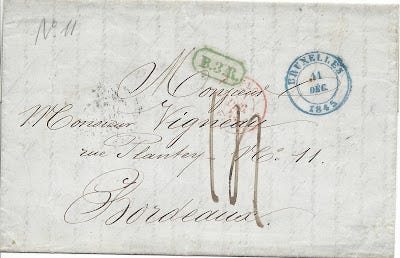 N° 11
B.3.R.
BRUXELLES
11
DÉC.
1845
Monsieur
Monsieur Vigneau
rue Plantey - N° 11.
Bordeaux